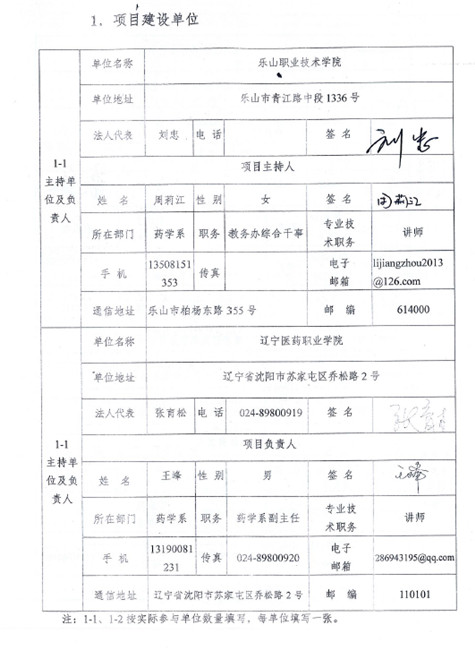 1. 项目建设单位
单位名称 乐山职业技术学院
单位地址 乐山市青江路中段1336号
法人代表 刘忠 电话 签名 刘忠
1-1
主持单
位及负
责人
项目主持人
姓名 周莉江 性别 女 签名 周莉江
所在部门 药学系 职务 教务办综合干事 专业技
术职务 讲师
手机 13508151
353 传真 电子
邮箱 lijiangzhou2013
@126.com
通信地址 乐山市柏杨东路355号 邮编 614000
单位名称 辽宁医药职业学院
单位地址 辽宁省沈阳市苏家屯区乔松路2号
法人代表 张育松 电话 024-89800919 签名
1-1
主持单
位及负
责人
项目负责人
姓名 王峰 性别 男 签名 王峰
所在部门 药学系 职务 药学系副主任 专业技
术职务 讲师
手机 13190081
231 传真 024-89800920 电子
邮箱 286943195@qq.com
通信地址 辽宁省沈阳市苏家屯区乔松路2号 邮编 110101
注：1-1、1-2按实际参与单位数量填写，每单位填写一张。